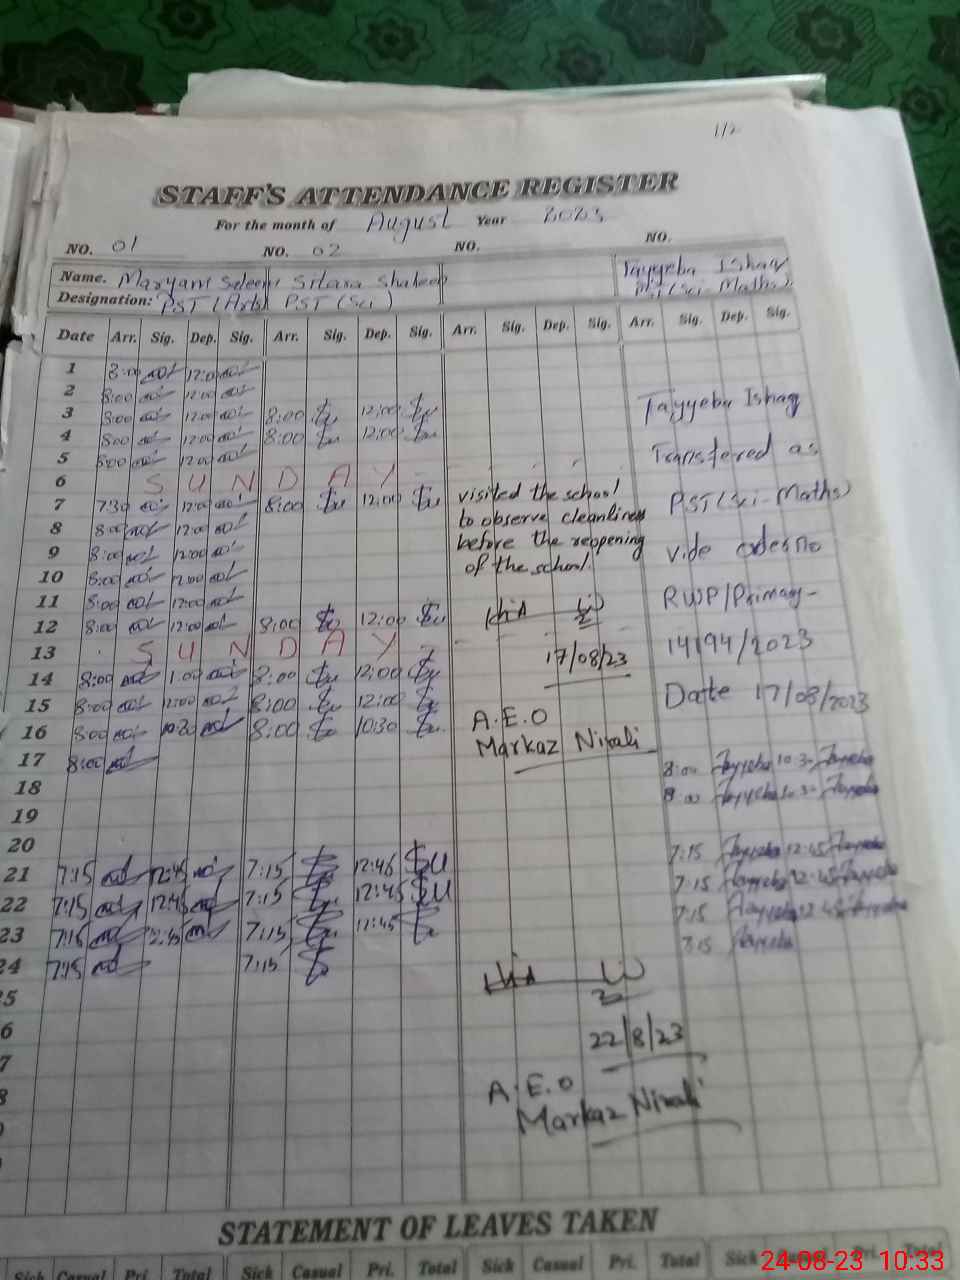 1/2
STAFF'S ATTENDANCE REGISTER
For the month of August Year 2023
NO. 01 NO. 02 NO. NO.
Name. Maryam Saleem Sitara Shakeel Tayyeba Ishaq
Designation: PST (Arts) PST (Sci) PST (Sci-Maths)
Date Arr. Sig. Dep. Sig. Arr. Sig. Dep. Sig. Arr. Sig. Dep. Sig. Arr. Sig. Dep. Sig.
1 8:00 12:00
2 8:00 12:00
3 8:00 12:00 8:00 12:00
4 8:00 12:00 8:00 12:00
5 8:00 12:00
6 SUNDAY
7 7:30 12:00 8:00 12:00
8 8:00 12:00
9 8:00 12:00
10 8:00 12:00
11 8:00 12:00
12 8:00 12:00 8:00 12:00
13 SUNDAY
14 8:00 1:00 8:00 12:00
15 8:00 12:00 8:00 12:00
16 8:00 10:30 8:00 10:30
17 8:00
18
19
20
21 7:15 12:45 7:15 12:45
22 7:15 12:45 7:15 12:45
23 7:15 12:45 7:15 12:45
24 7:15 7:15
5
6
7
8
visited the school
to observe cleanliness
before the reopening
of the school.
17/08/23
A.E.O
Markaz Nirali
22/8/23
A.E.O
Markaz Nirali
Tayyeba Ishaq
Transferred as
PST (Sci-Maths)
vide orders no
RWP/Primary-
14194/2023
Date 17/08/2023
8:00 Tayyeba 10:30 Tayyeba
8:00 Tayyeba 10:30 Tayyeba
7:15 Tayyeba 12:45 Tayyeba
7:15 Tayyeba 12:45 Tayyeba
7:15 Tayyeba 12:45 Tayyeba
7:15 Tayyeba
STATEMENT OF LEAVES TAKEN
Sick Casual Pri. Total Sick Casual Pri. Total Sick Casual Pri. Total Sick Pri. Total
24-08-23 10:33